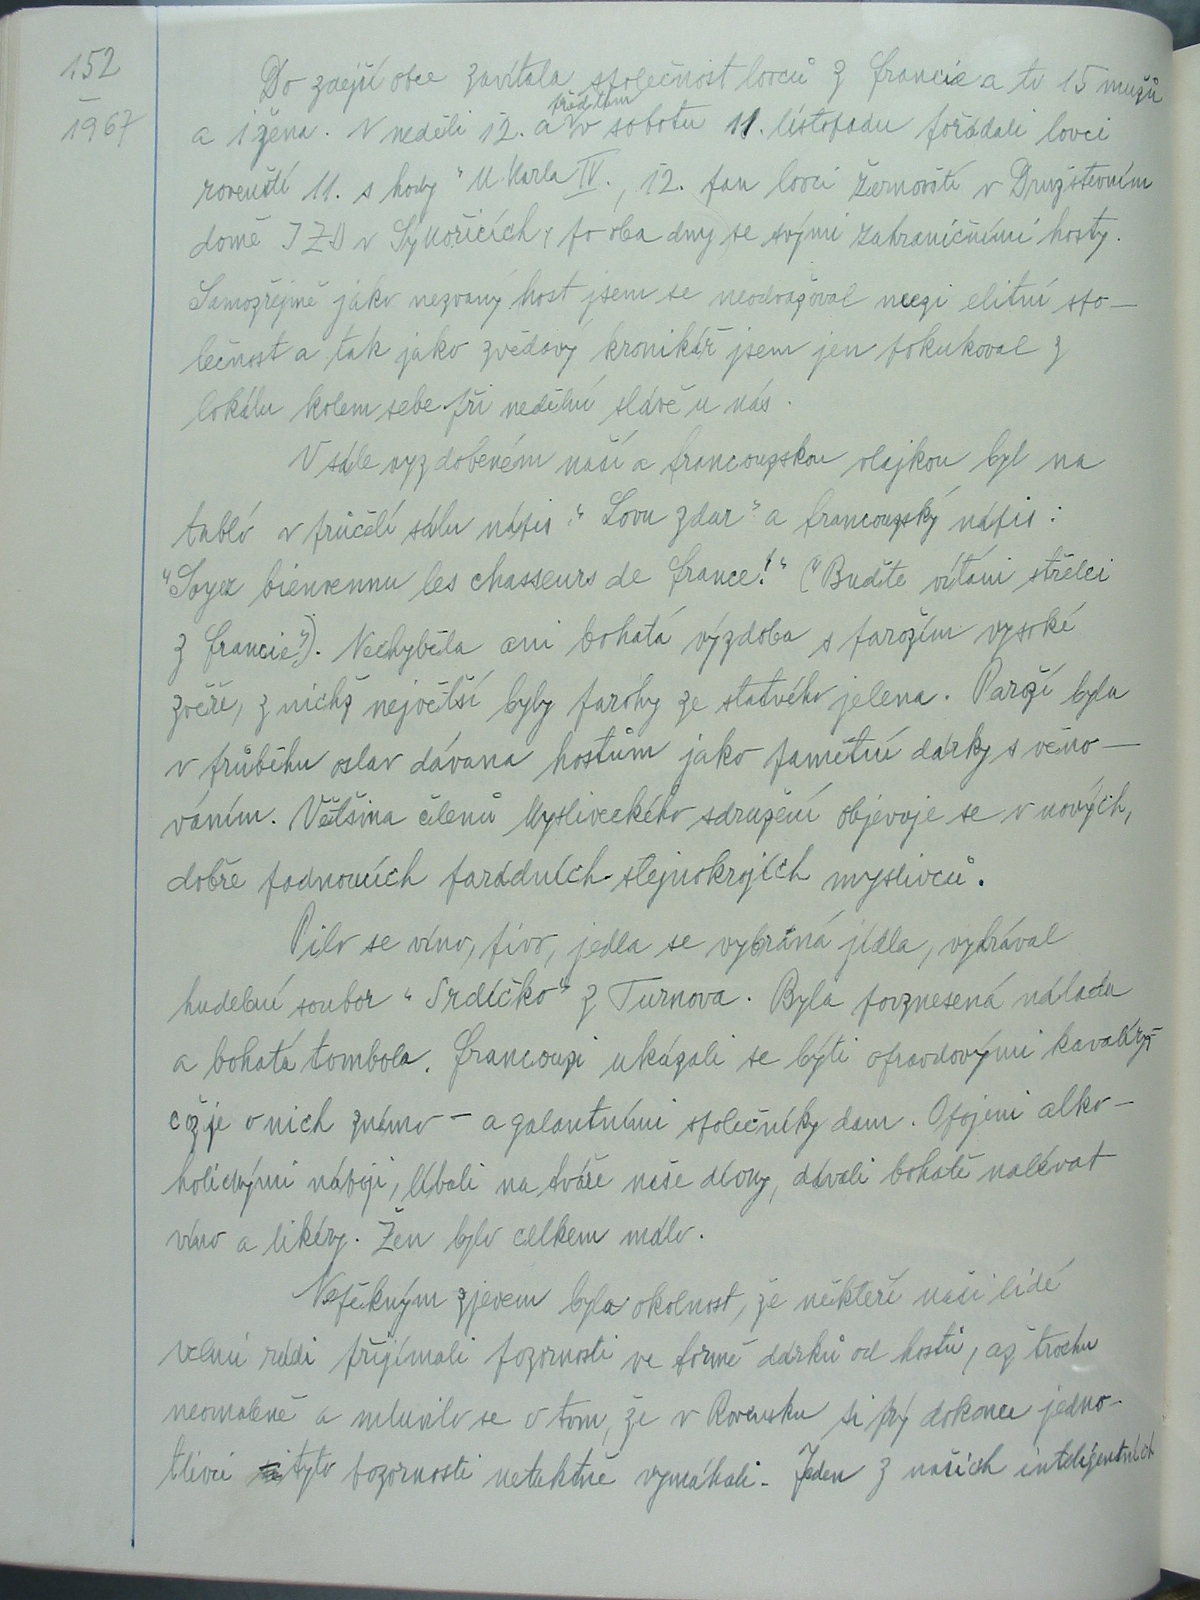 152
1967
Do zdejší obce zavítala společnost lovců z Francie a to 15 mužů
předtím
a 1 žena. V neděli 12. a v sobotu 11. listopadu pořádali lovci
rovenští 11. s hody "U Karla IV.", 12. pak lovci žernovští v Družstevním
domě JZD v Sýkořicích, po oba dny se svými zahraničními hosty.
Samozřejmě jako nezvaný host jsem se neodvažoval mezi elitní spo-
lečnost a tak jako zvědavý kronikář jsem jen pokukoval z
lokálu kolem sebe při nedělní slávě u nás.
V sále vyzdobeném naší a francouzskou vlajkou byl na
tabló v průčelí sálu nápis "Lovu zdar" a francouzský nápis:
"Soyez bienvennu les chasseurs de France!" ("Buďte vítáni střelci
z Francie"). Nechyběla ani bohatá výzdoba s parožím vysoké
zvěře, z nichž největší byly parohy ze statného jelena. Paroží byla
v průběhu oslav dávána hostům jako památní dárky s věno-
váním. Většina členů Mysliveckého sdružení objevuje se v nových,
dobře padnoucích parádních stejnokrojích myslivců.
Pilo se víno, pivo, jedla se vybraná jídla, vyhrával
hudební soubor "Srdíčko" z Turnova. Byla povznesená nálada
a bohatá tombola. Francouzi ukázali se býti opravdovými kavalíry -
což je o nich známo - a galantními společníky dam. Opojeni alko-
holickými nápoji, líbali na tváře naše dívky, dávali bohatě nalévat
víno a likéry. Žen bylo celkem málo.
Nepěkným zjevem byla okolnost, že někteří naši lidé
velmi rádi přijímali pozornosti ve formě dárků od hostů, až trochu
neomaleně a mluvilo se o tom, že v Rovensku si prý dokonce jedno-
tlivci tyto pozornosti netaktně vymáhali. Jeden z našich inteligentních